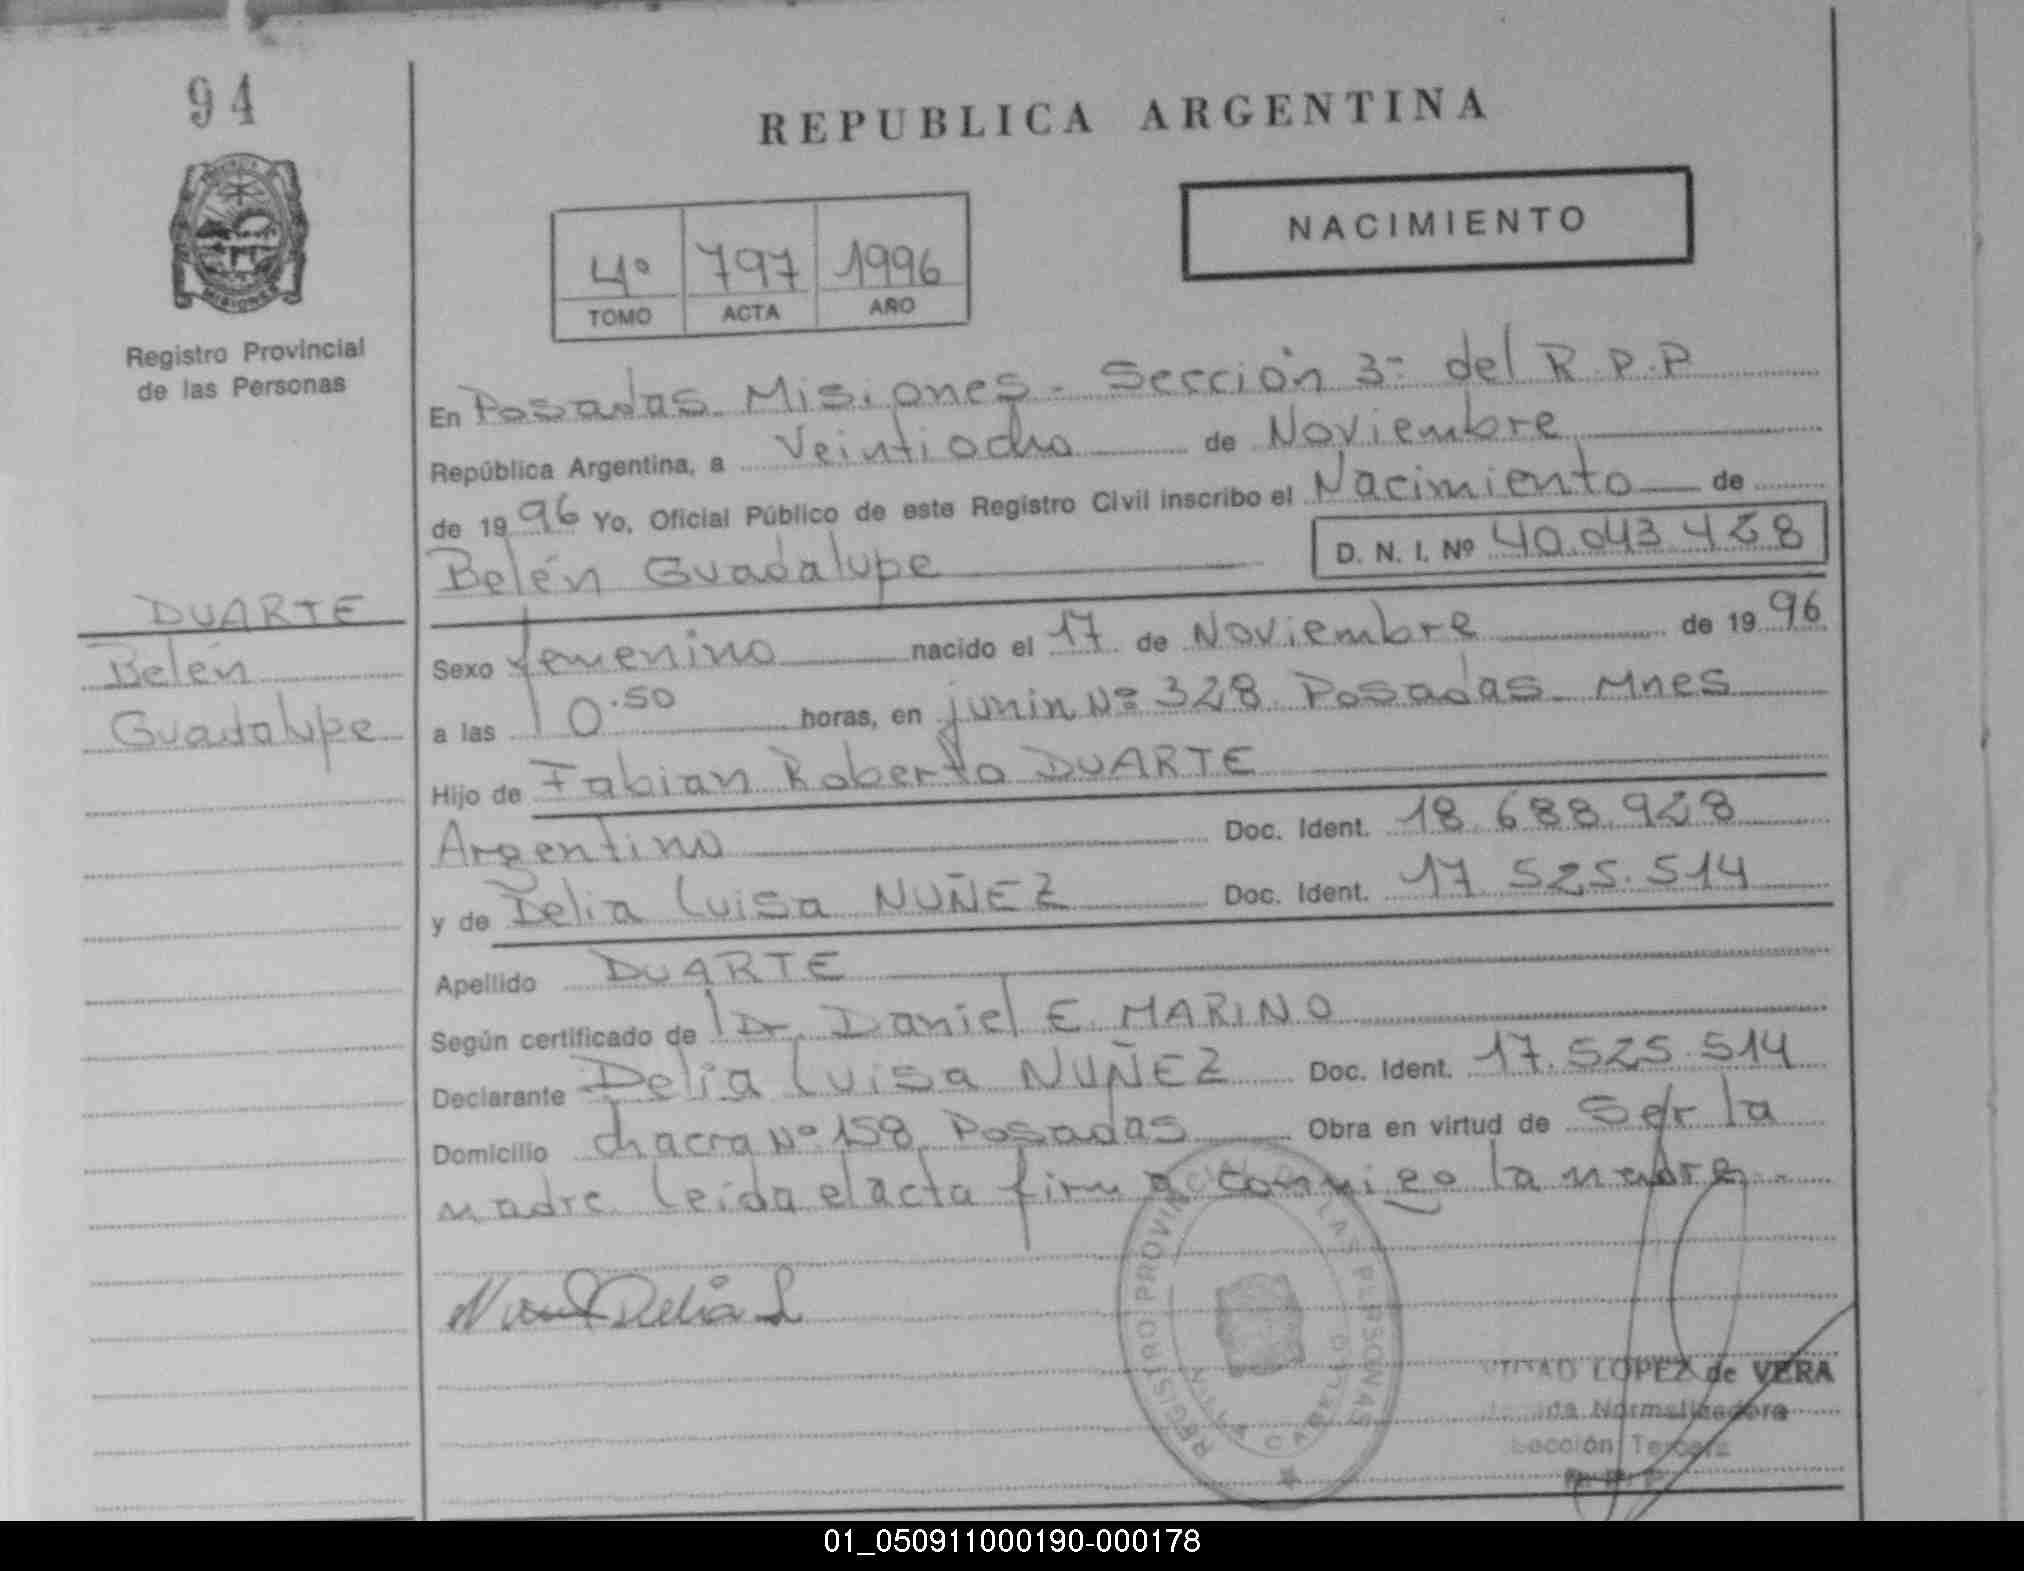 94
REPUBLICA ARGENTINA
NACIMIENTO
4º 797 1996
TOMO ACTA AÑO
MISIONES
Registro Provincial
de las Personas
En Posadas Misiones - Sección 3ª del R.P.P
República Argentina, a Veintiocho de Noviembre
de 1996 Yo, Oficial Público de este Registro Civil inscribo el Nacimiento de
Belén Guadalupe D. N. I. Nº 40.043.428
DUARTE
Belén
Guadalupe
Sexo femenino nacido el 17 de Noviembre de 1996
a las 10.50 horas, en junin Nº 328 Posadas Mnes
Hijo de Fabian Roberto DUARTE
Argentino Doc. Ident. 18.688.928
y de Delia Luisa NUÑEZ Doc. Ident. 17.525.514
Apellido DUARTE
Según certificado de Dr. Daniel E. MARINO
Declarante Delia Luisa NUÑEZ Doc. Ident. 17.525.514
Domicilio chacra Nº 158 Posadas Obra en virtud de Ser la
madre leida el acta firma conmigo la madre.-
Delia L
REGISTRO PROVINCIAL DE LAS PERSONAS
VILLA CABELLO
LOPEZ de VERA
Normalizadora
Sección Tercera
01_050911000190-000178